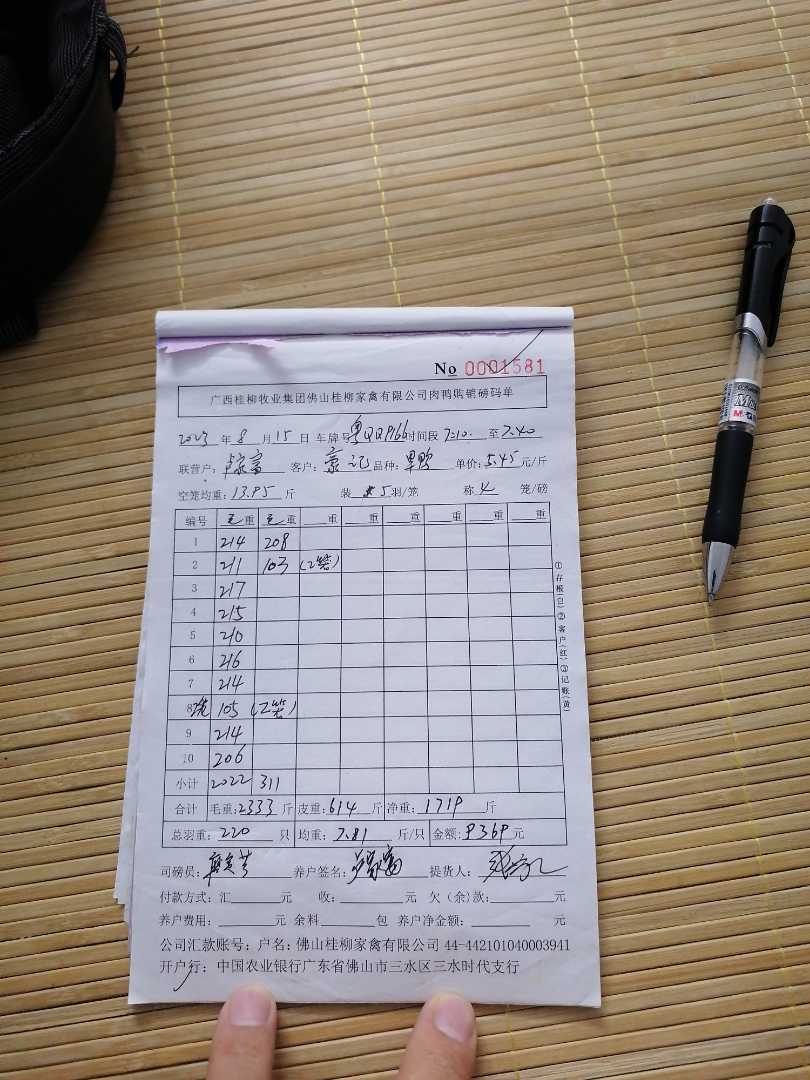 No 0001581
广西桂柳牧业集团佛山桂柳家禽有限公司肉鸭购销磅码单
2023 年 8 月 15 日 车牌号 粤QQ9166 时间段 7:10. 至 7.40
联营户: 客户: 记 品种: 单价: 5.45 元/斤
空笼均重: 13.95 斤 装 5 羽/笼 称 4 笼/磅
编号 毛重 毛重 重 重 重 重 重 重
1 214 208
2 211 103 (2笼)
3 217
4 215
5 210
6 216
7 214
8 105 (2笼)
9 214
10 206
小计 2022 311
合计 毛重: 2333 斤 皮重: 614 斤 净重: 1719 斤
总羽重: 220 只 均重: 7.81 斤/只 金额: 9369 元
司磅员: 养户签名: 提货人:
付款方式: 汇 元 收: 元 欠(余)款: 元
养户费用: 元 余料 包 养户净金额: 元
公司汇款账号: 户名: 佛山桂柳家禽有限公司 44-442101040003941
开户行: 中国农业银行广东省佛山市三水区三水时代支行
①存根(白)②客户(红)③记账(黄)